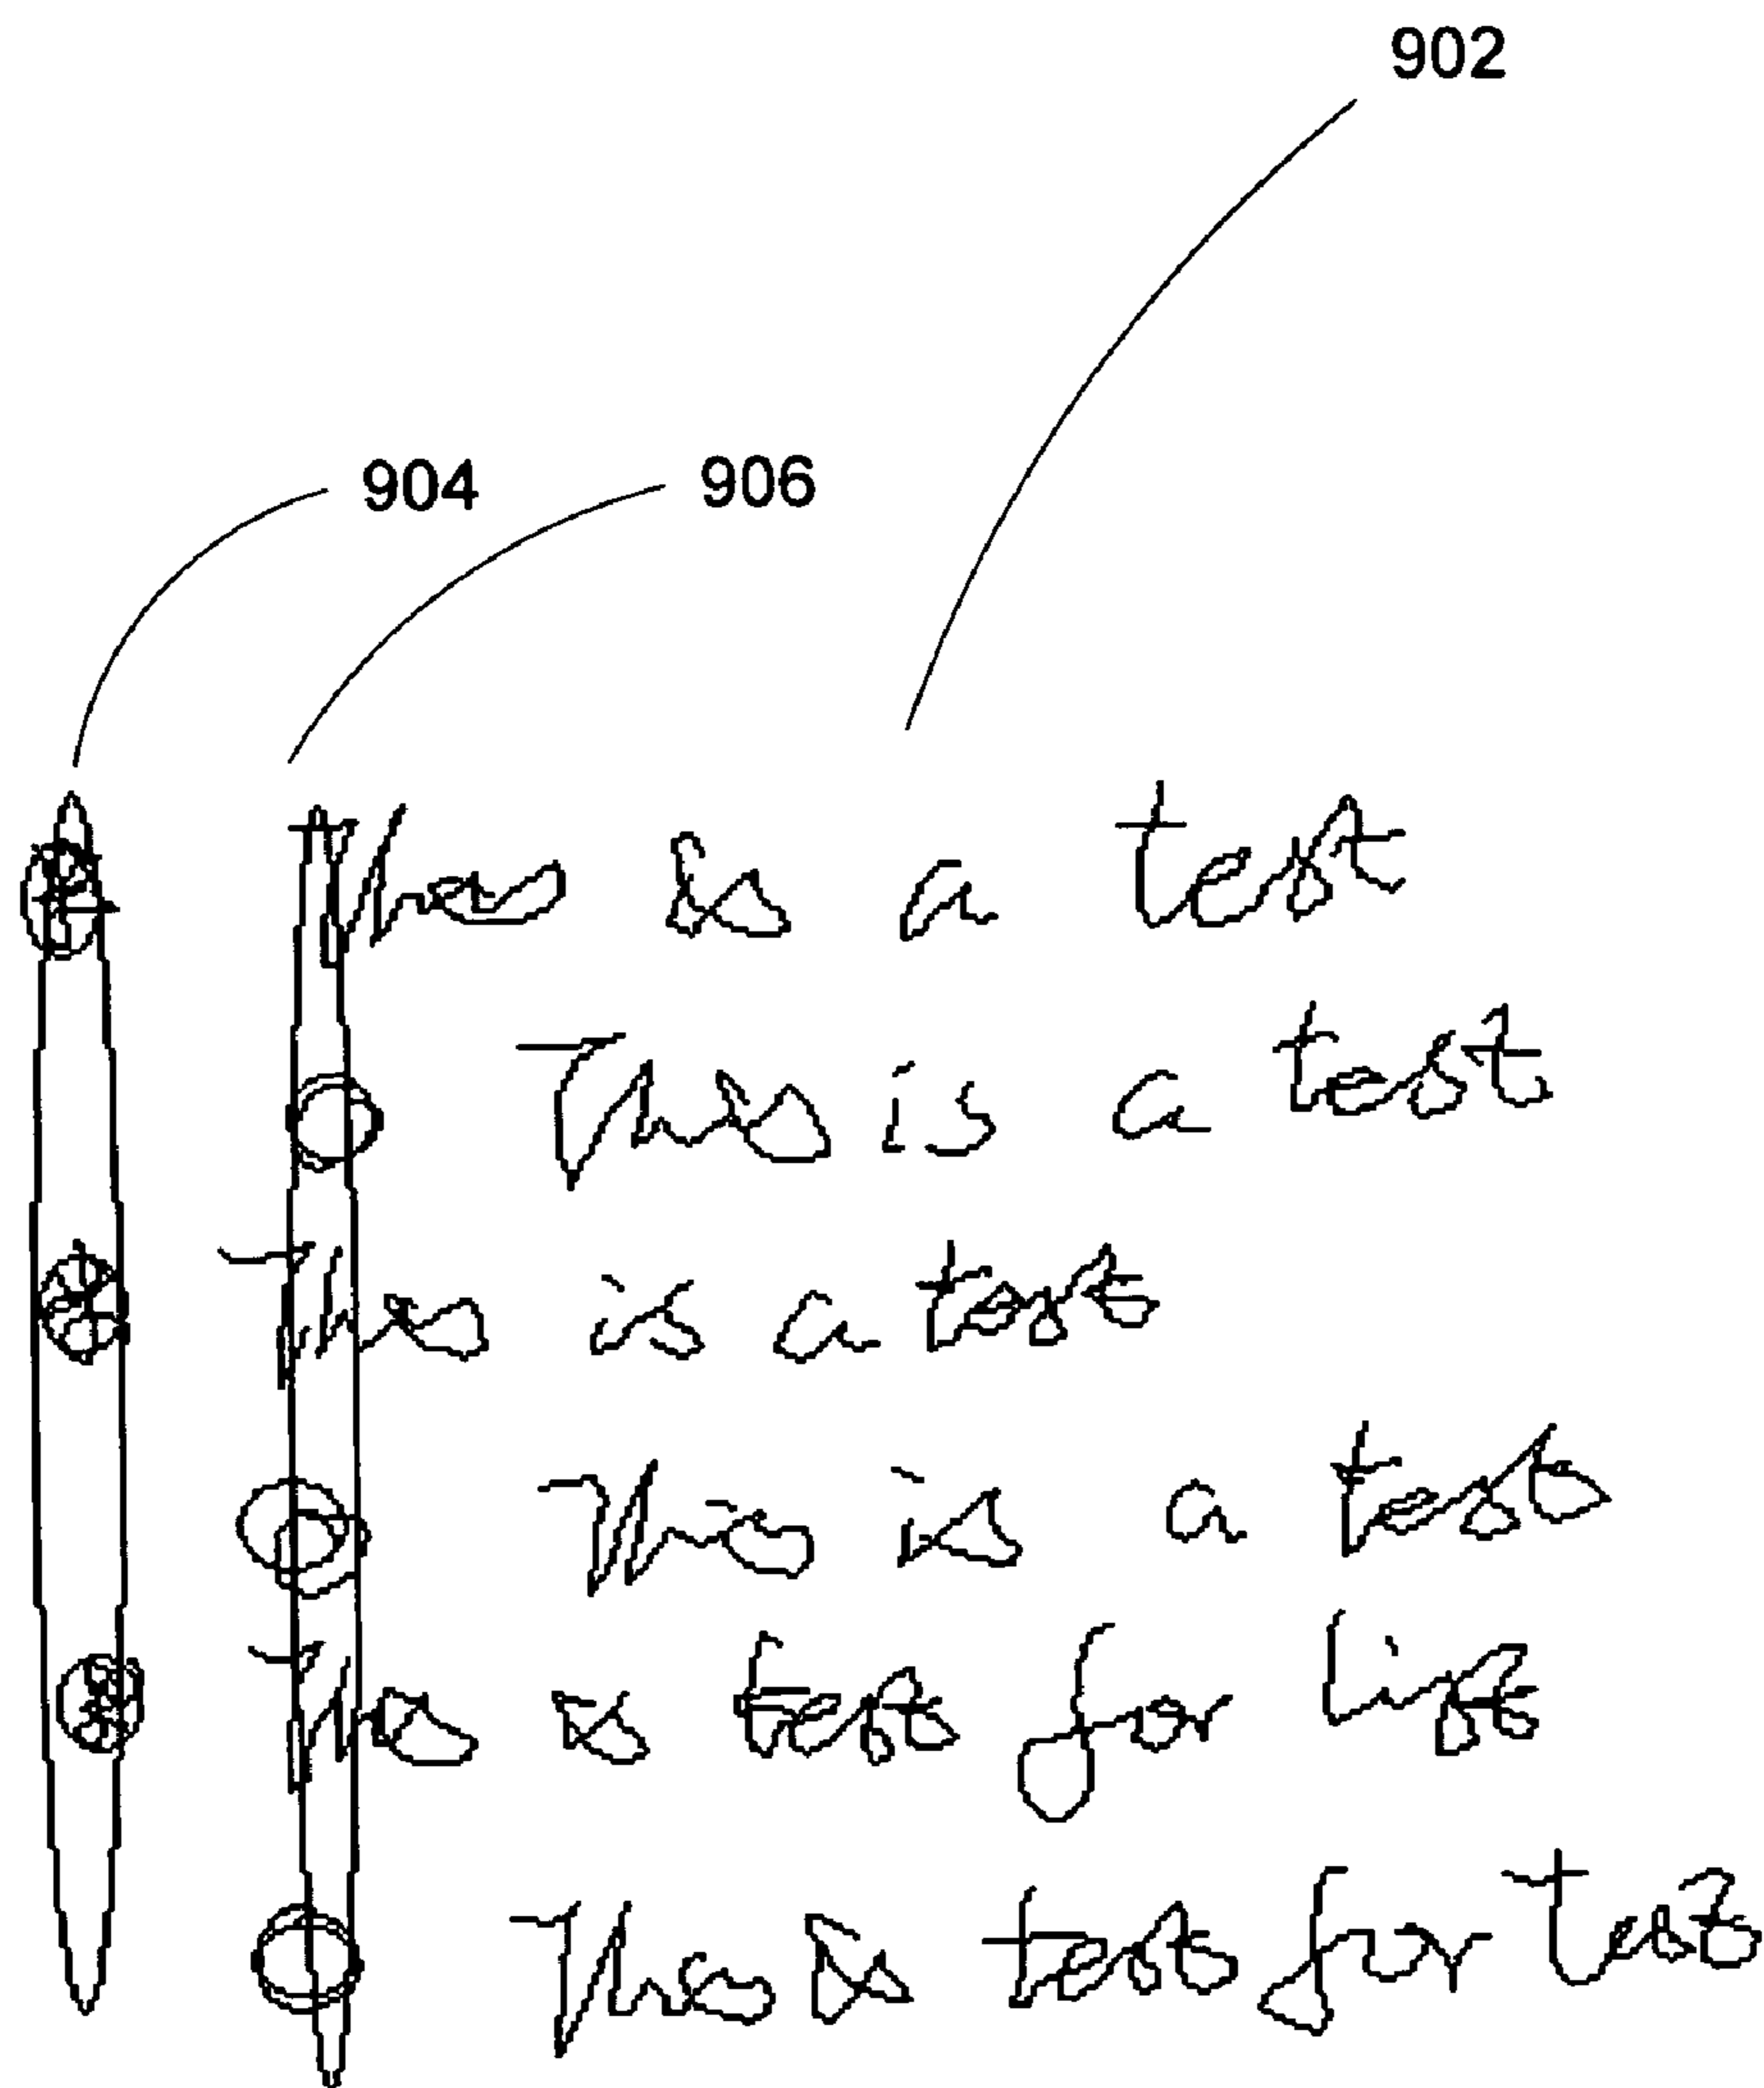 902
904 906
This is a test
This is a test
This is a test
This is a test
This is test for life
This is test for